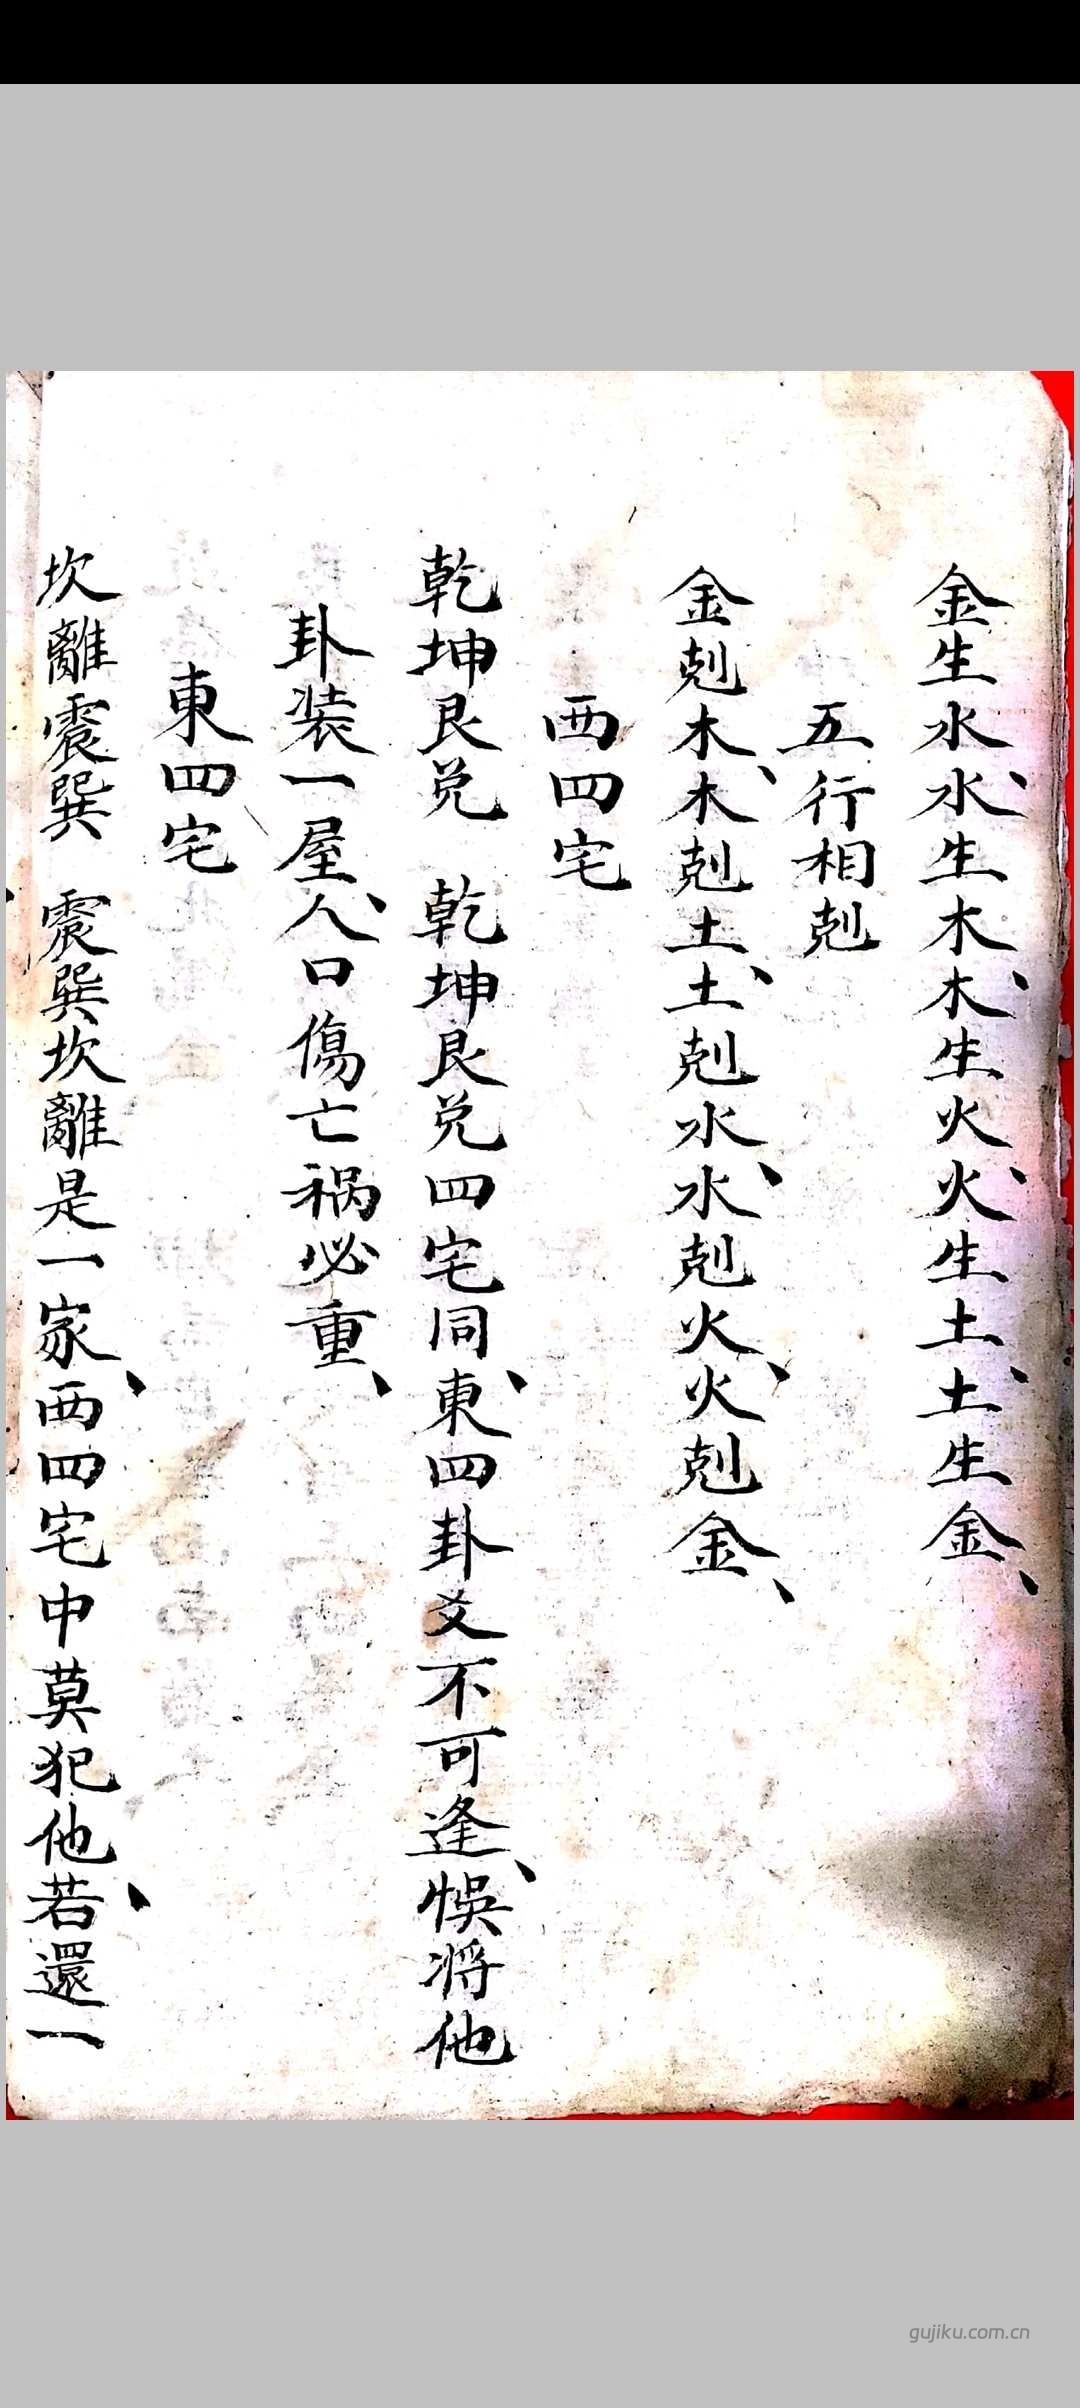 金生水、水生木、木生火、火生土、土生金、
五行相剋
金剋木、木剋土、土剋水、水剋火、火剋金、
西四宅
乾坤艮兑　乾坤艮兑四宅同、東四卦爻不可逢、悞将他
卦装一屋、人口傷亡祸必重、
東四宅
坎離震巽　震巽坎離是一家、西四宅中莫犯他、若還一
gujiku.com.cn